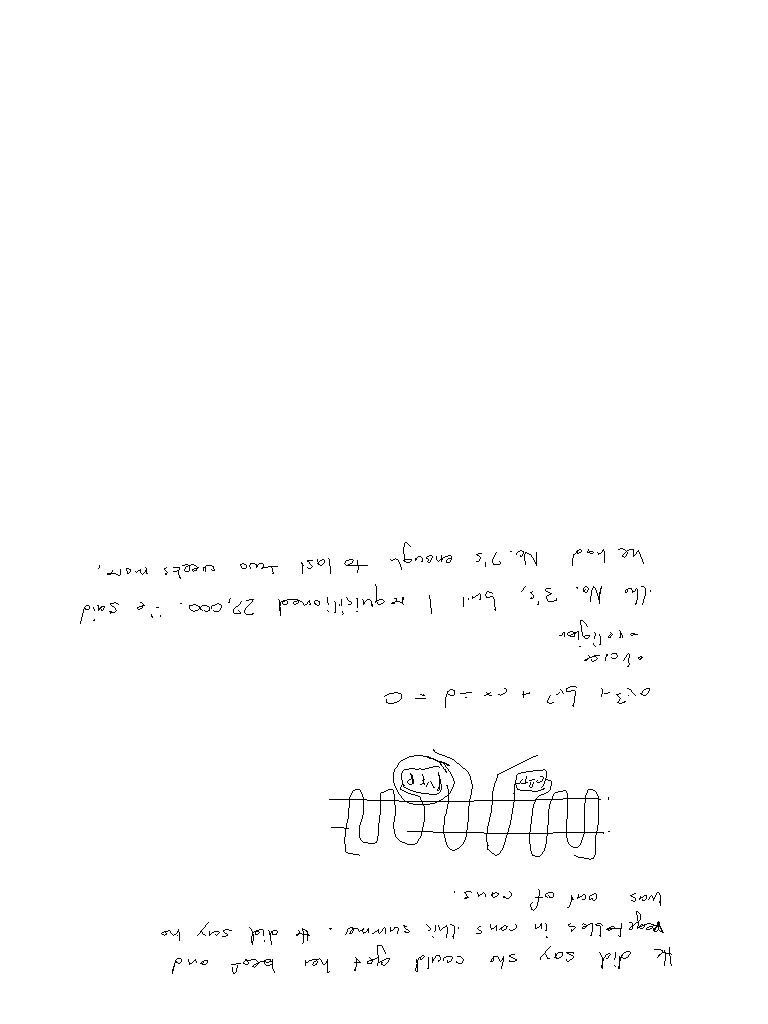 He did say she could get her beat and
vegetables in cans this summer. He did say he
was out of cans.
ax3 + bx2 + cx + d = 0
• race
• religion
the No. 3's, but I requisitioned 27,000. He said
he had No. 2's enough to last two weeks more.